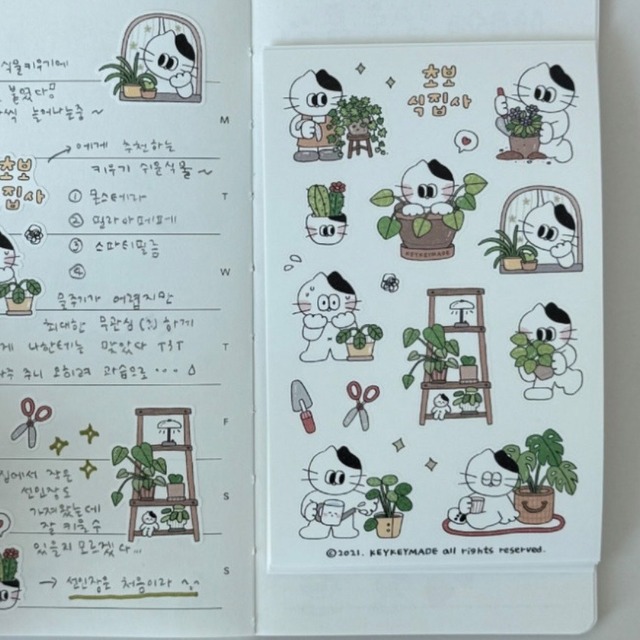 식물키우기에
늘어나는중 ~
초보
집사
에게 추천하는
키우기 쉬운식물 ~
① 몬스테라
② 필라아페페
③ 스파티필름
④
물주기가 어렵지만
최대한 무관심 (?) 하게
나한테는 맞았다
주니 오히려 과습으로 ...
집에서 작은
선인장도
가져왔는데
잘 키울 수
있을지 모르겠다..
→ 선인장은 처음이라 ^^
M
T
W
T
F
S
S
초보
식집사
KEYKEYMADE
©2021. KEYKEYMADE all rights reserved.